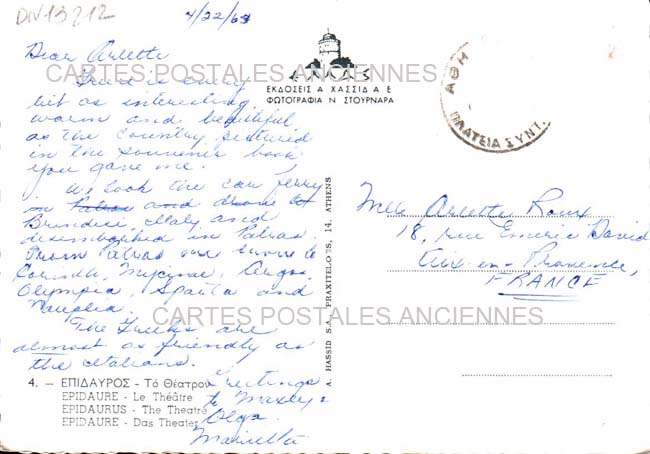 DIV-13212
4/22/63
Dear Arlette
Greece is every
bit as interesting,
warm and beautiful
as the country pictured
in the souvenir book
you gave me.
We took the car ferry
in Patras and drove to
Brindisi, Italy and
disembarked in Patras.
From Patras we drove to
Corinth, Mycinae, Argos,
Olympia, Sparta and
Nauplia.
The Greeks are
almost as friendly as
the Italians.
Greetings
to
Olga
Marietta
CARTES POSTALES ANCIENNES
CARTES POSTALES ANCIENNES
ΕΚΔΟΣΕΙΣ Α ΧΑΣΣΙΔ Α Ε
ΦΩΤΟΓΡΑΦΙΑ Ν ΣΤΟΥΡΝΑΡΑ
ΑΘΗ
ΠΛΑΤΕΙΑ ΣΥΝΤ.
Mlle Arlette Roux
18, rue Emeric David
Aix-en-Provence,
FRANCE
A. HASSID S.A., PRAXITELOUS, 14, ATHENS
4. — ΕΠΙΔΑΥΡΟΣ - Τό Θέατρον
EPIDAURE - Le Théâtre
EPIDAURUS - The Theatre
EPIDAURE - Das Theater